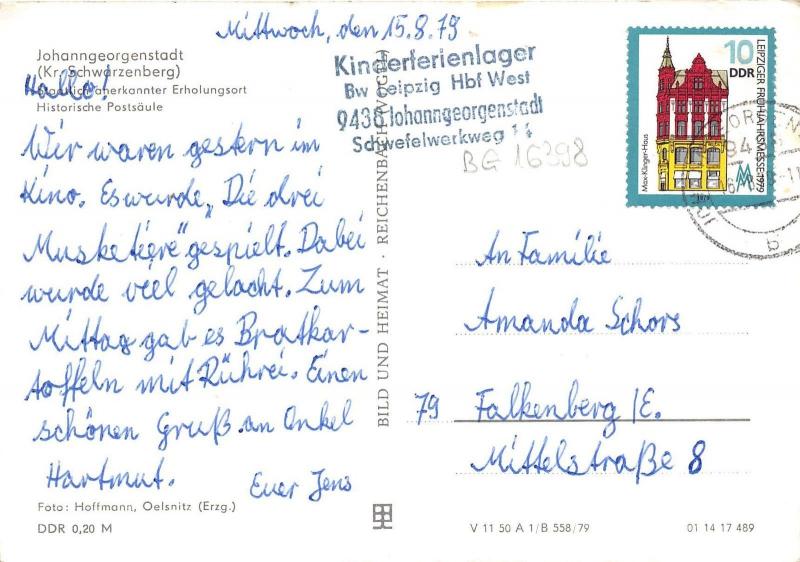 Mittwoch, den 15.8.79
Johanngeorgenstadt
(Kr. Schwarzenberg)
Staatlich anerkannter Erholungsort
Historische Postsäule
Hallo!
Wir waren gestern im
Kino. Es wurde „Die drei
Musketiere“ gespielt. Dabei
wurde viel gelacht. Zum
Mittag gab es Bratkar-
toffeln mit Rührei. Einen
schönen Gruß an Onkel
Hartmut.
Euer Jens
Foto: Hoffmann, Oelsnitz (Erzg.)
DDR 0,20 M
BILD UND HEIMAT · REICHENBACH (VOGTL)
Kinderferienlager
Bw Leipzig Hbf West
9438 Johanngeorgenstadt
Schwefelwerkweg 11
BG 16398
10
DDR
LEIPZIGER FRÜHJAHRSMESSE 1979
Max-Klinger-Haus
MM
b
An Familie
Amanda Schors
79 Falkenberg/E.
Mittelstraße 8
V 11 50 A 1/B 558/79
01 14 17 489